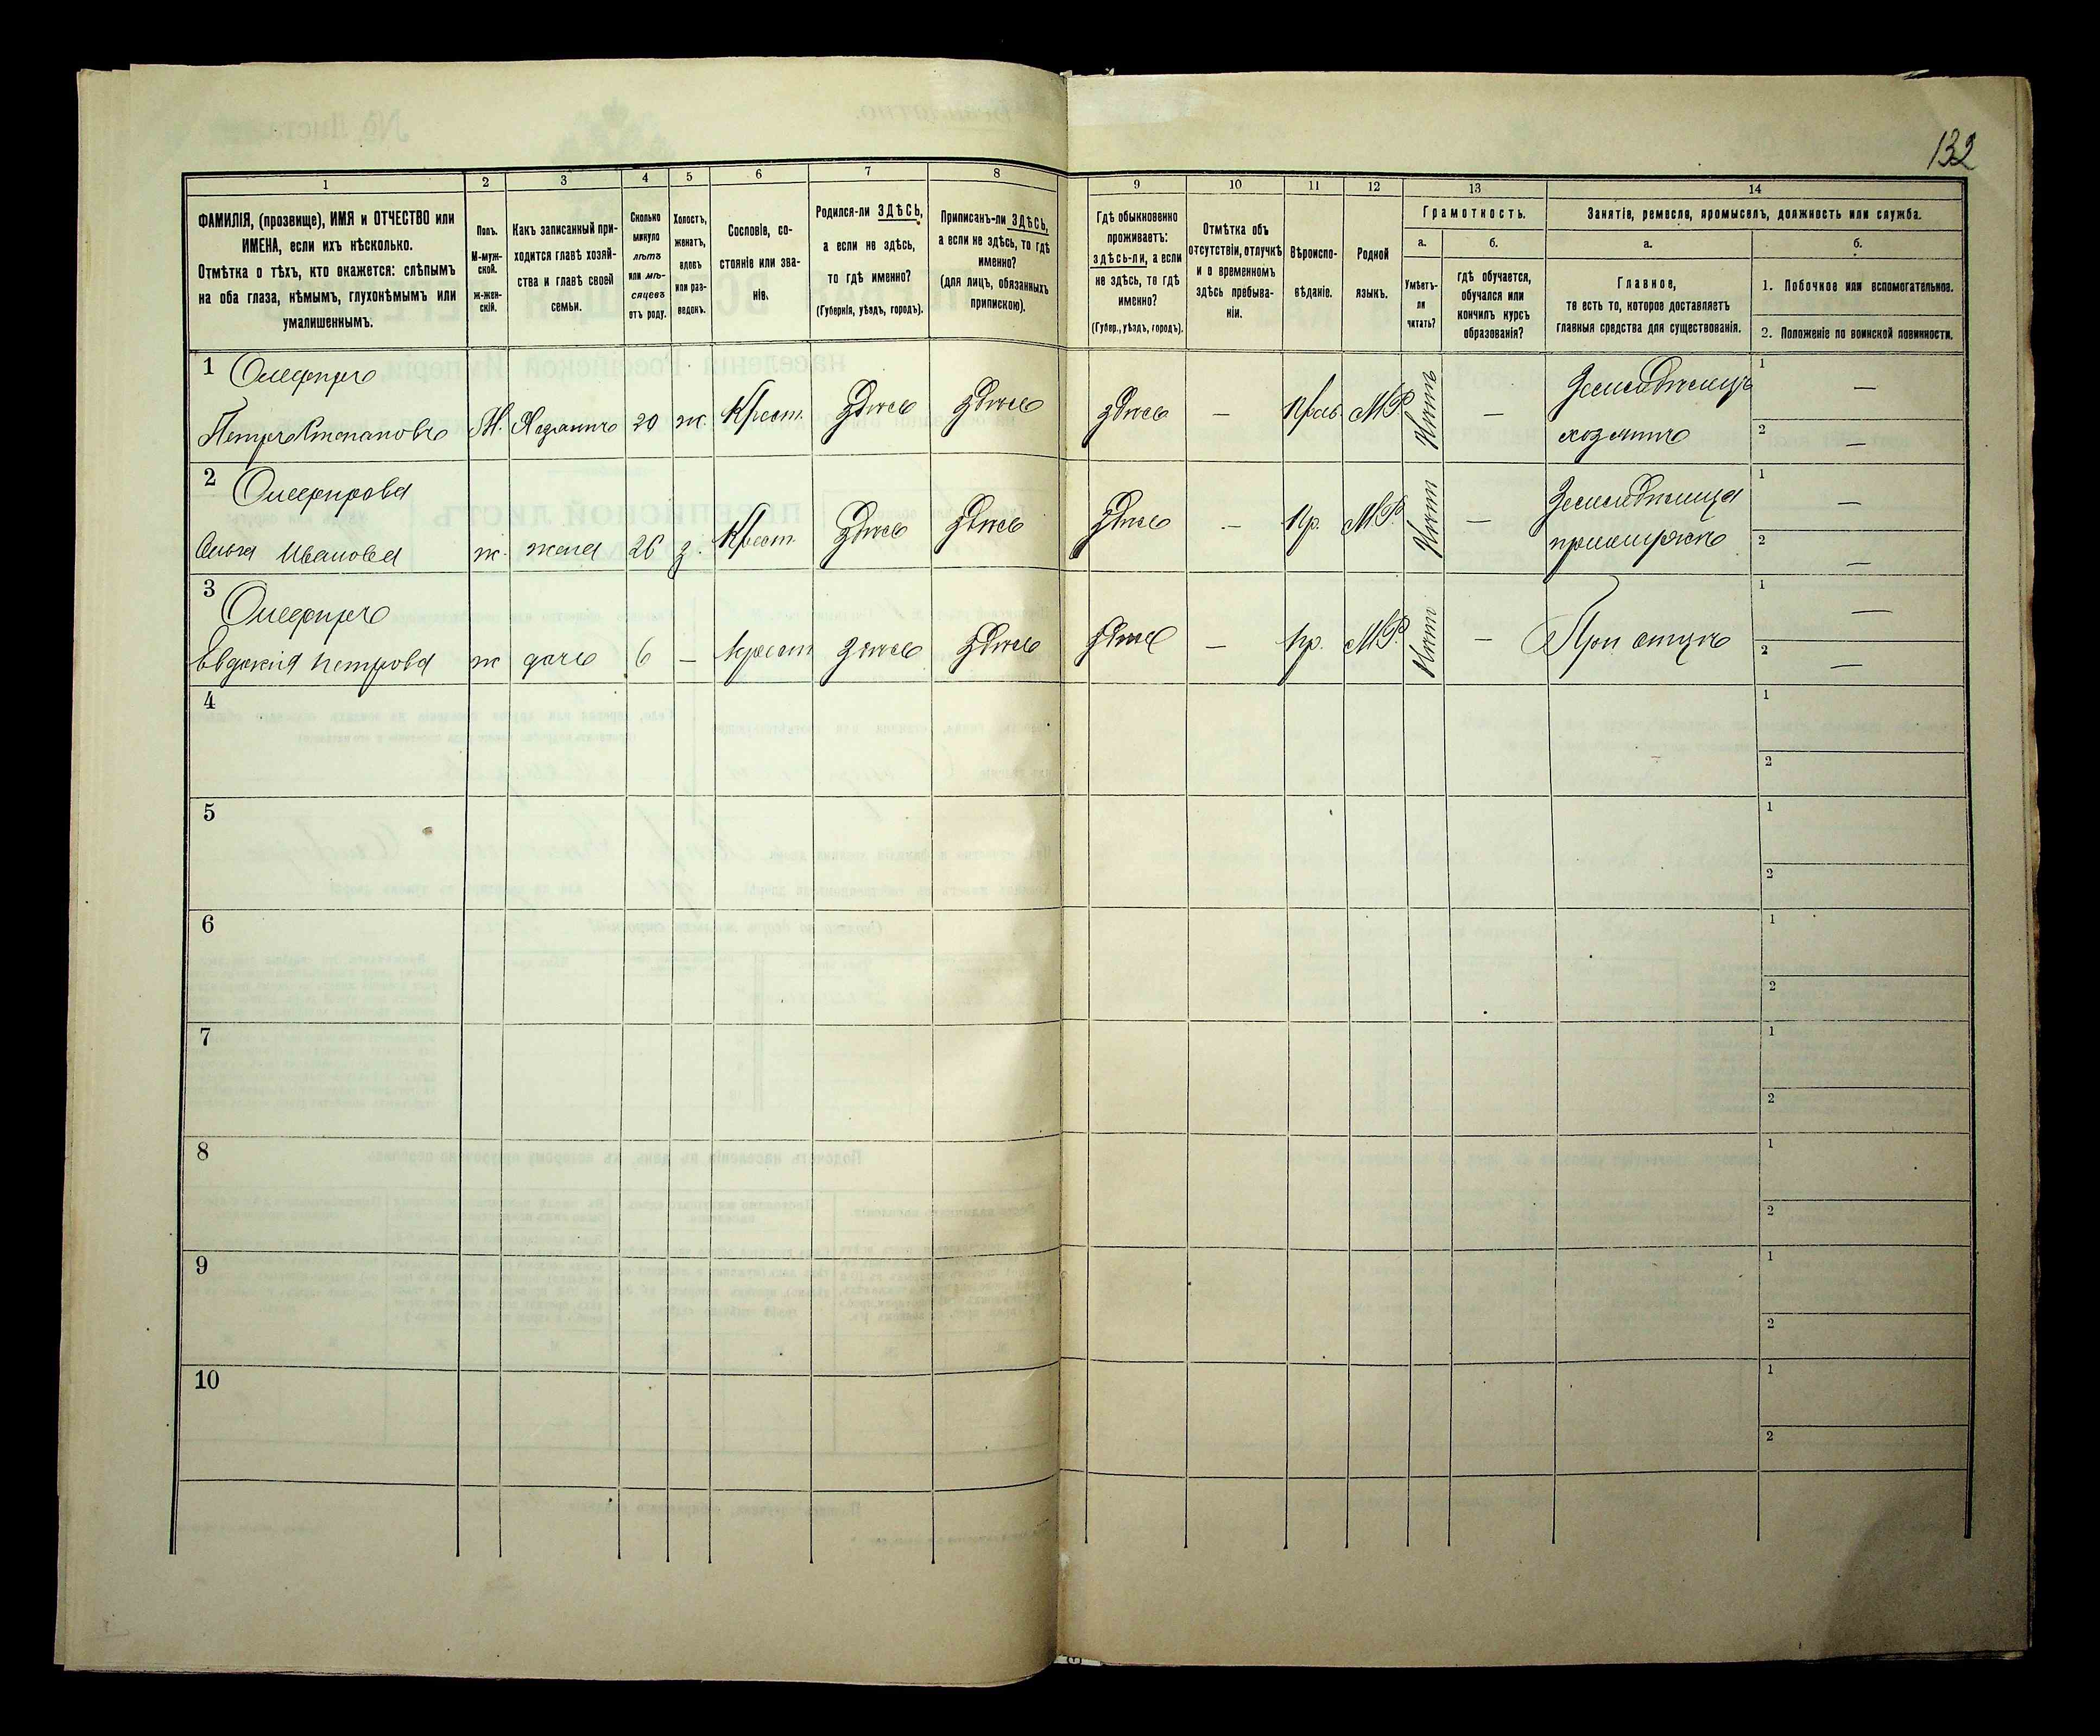 132
1 2 3 4 5 6 7 8 9 10 11 12 13 14
ФАМИЛІЯ, (прозвище), ИМЯ и ОТЧЕСТВО или
ИМЕНА, если ихъ нѣсколько.
Отмѣтка о тѣхъ, кто окажется: слѣпымъ
на оба глаза, нѣмымъ, глухонѣмымъ или
умалишеннымъ.
Полъ.
М-муж-
ской.
ж-жен-
скій.
Какъ записанный при-
ходится главѣ хозяй-
ства и главѣ своей
семьи.
Сколько
минуло
лѣтъ
или мѣ-
сяцевъ
отъ роду.
Холостъ,
женатъ,
вдовъ
или раз-
веденъ.
Сословіе, со-
стояніе или зва-
ніе.
Родился-ли ЗДѢСЬ,
а если не здѣсь,
то гдѣ именно?
(Губернія, уѣздъ, городъ).
Приписанъ-ли ЗДѢСЬ,
а если не здѣсь, то гдѣ
именно?
(для лицъ, обязанныхъ
припискою).
Гдѣ обыкновенно
проживаетъ:
здѣсь-ли, а если
не здѣсь, то гдѣ
именно?
(Губер., уѣздъ, городъ).
Отмѣтка объ
отсутствіи, отлучкѣ
и о временномъ
здѣсь пребыва-
ніи.
Вѣроиспо-
вѣданіе.
Родной
языкъ.
Грамотность.
а.
Умѣетъ-
ли
читать?
б.
гдѣ обучается,
обучался или
кончилъ курсъ
образованія?
Занятіе, ремесло, промыселъ, должность или служба.
а.
Главное,
то есть то, которое доставляетъ
главныя средства для существованія.
б.
1. Побочное или вспомогательное.
2. Положеніе по воинской повинности.
1 Олефиръ
Петръ Степановъ М. Хозяинъ ж. Крест. Здѣсь здѣсь здѣсь — Прав М.Р. Нѣтъ — Земледѣлецъ 1 —
хозяинъ 2 —
2 Олефирова
Ивановна ж. жена 26 з. Крест. Здѣсь здѣсь здѣсь — Пр. М.Р. Нѣтъ — 1 —
2 —
3 Олефиръ
Евдокия Петрова ж дочь 6 — Крест здѣсь здѣсь здѣсь — Пр. М.Р. Нѣтъ — При отцѣ 1 —
2 —
4 1
2
5 1
2
6 1
2
7 1
2
8 1
2
9 1
2
10 1
2